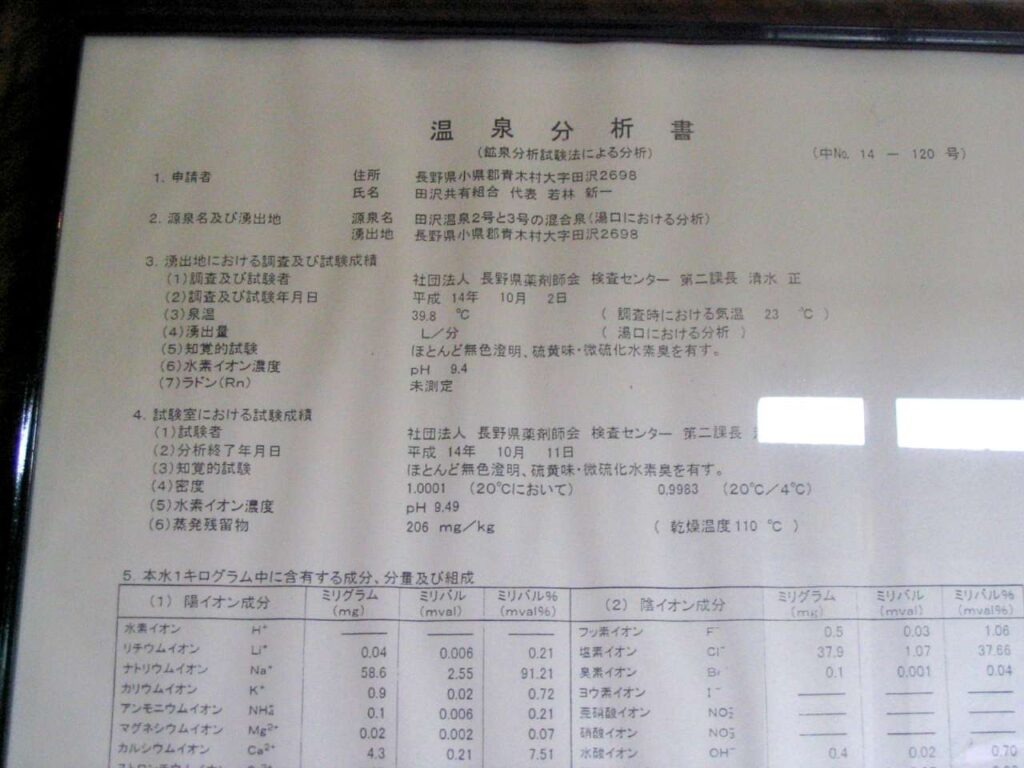 温泉分析書
(鉱泉分析試験法による分析)
(中No. 14 － 120 号)
1. 申請者 住所 長野県小県郡青木村大字田沢2698
氏名 田沢共有組合 代表 若林 新一
2. 源泉名及び湧出地 源泉名 田沢温泉2号と3号の混合泉(湯口における分析)
湧出地 長野県小県郡青木村大字田沢2698
3. 湧出地における調査及び試験成績
(1)調査及び試験者 社団法人 長野県薬剤師会 検査センター 第二課長 清水 正
(2)調査及び試験年月日 平成 14年 10月 2日
(3)泉温 39.8 ℃ ( 調査時における気温 23 ℃ )
(4)湧出量 L／分 ( 湯口における分析 )
(5)知覚的試験 ほとんど無色澄明、硫黄味・微硫化水素臭を有す。
(6)水素イオン濃度 pH 9.4
(7)ラドン(Rn) 未測定
4. 試験室における試験成績
(1)試験者 社団法人 長野県薬剤師会 検査センター 第二課長
(2)分析終了年月日 平成 14年 10月 11日
(3)知覚的試験 ほとんど無色澄明、硫黄味・微硫化水素臭を有す。
(4)密度 1.0001 (20℃において) 0.9983 (20℃／4℃)
(5)水素イオン濃度 pH 9.49
(6)蒸発残留物 206 mg/kg ( 乾燥温度110 ℃ )
5. 本水1キログラム中に含有する成分、分量及び組成
(1) 陽イオン成分 ミリグラム (mg) ミリバル (mval) ミリバル% (mval%) (2) 陰イオン成分 ミリグラム (mg) ミリバル (mval) ミリバル% (mval%)
水素イオン H⁺ ―― ―― ―― フッ素イオン F⁻ 0.5 0.03 1.06
リチウムイオン Li⁺ 0.04 0.006 0.21 塩素イオン Cl⁻ 37.9 1.07 37.66
ナトリウムイオン Na⁺ 58.6 2.55 91.21 臭素イオン Br⁻ 0.1 0.001 0.04
カリウムイオン K⁺ 0.9 0.02 0.72 ヨウ素イオン I⁻ ―― ―― ――
アンモニウムイオン NH₄⁺ 0.1 0.006 0.21 亜硝酸イオン NO₂⁻ ―― ―― ――
マグネシウムイオン Mg²⁺ 0.02 0.002 0.07 硝酸イオン NO₃⁻ ―― ―― ――
カルシウムイオン Ca²⁺ 4.3 0.21 7.51 水酸イオン OH⁻ 0.4 0.02 0.70